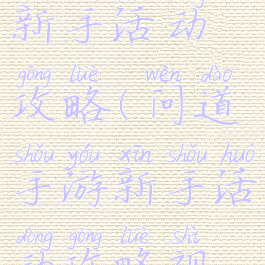 新手活动
gōng lüè wèn dào
攻略(问道
shǒu yóu xīn shǒu huó
手游新手活
dòng gōng lüè shì
动攻略视